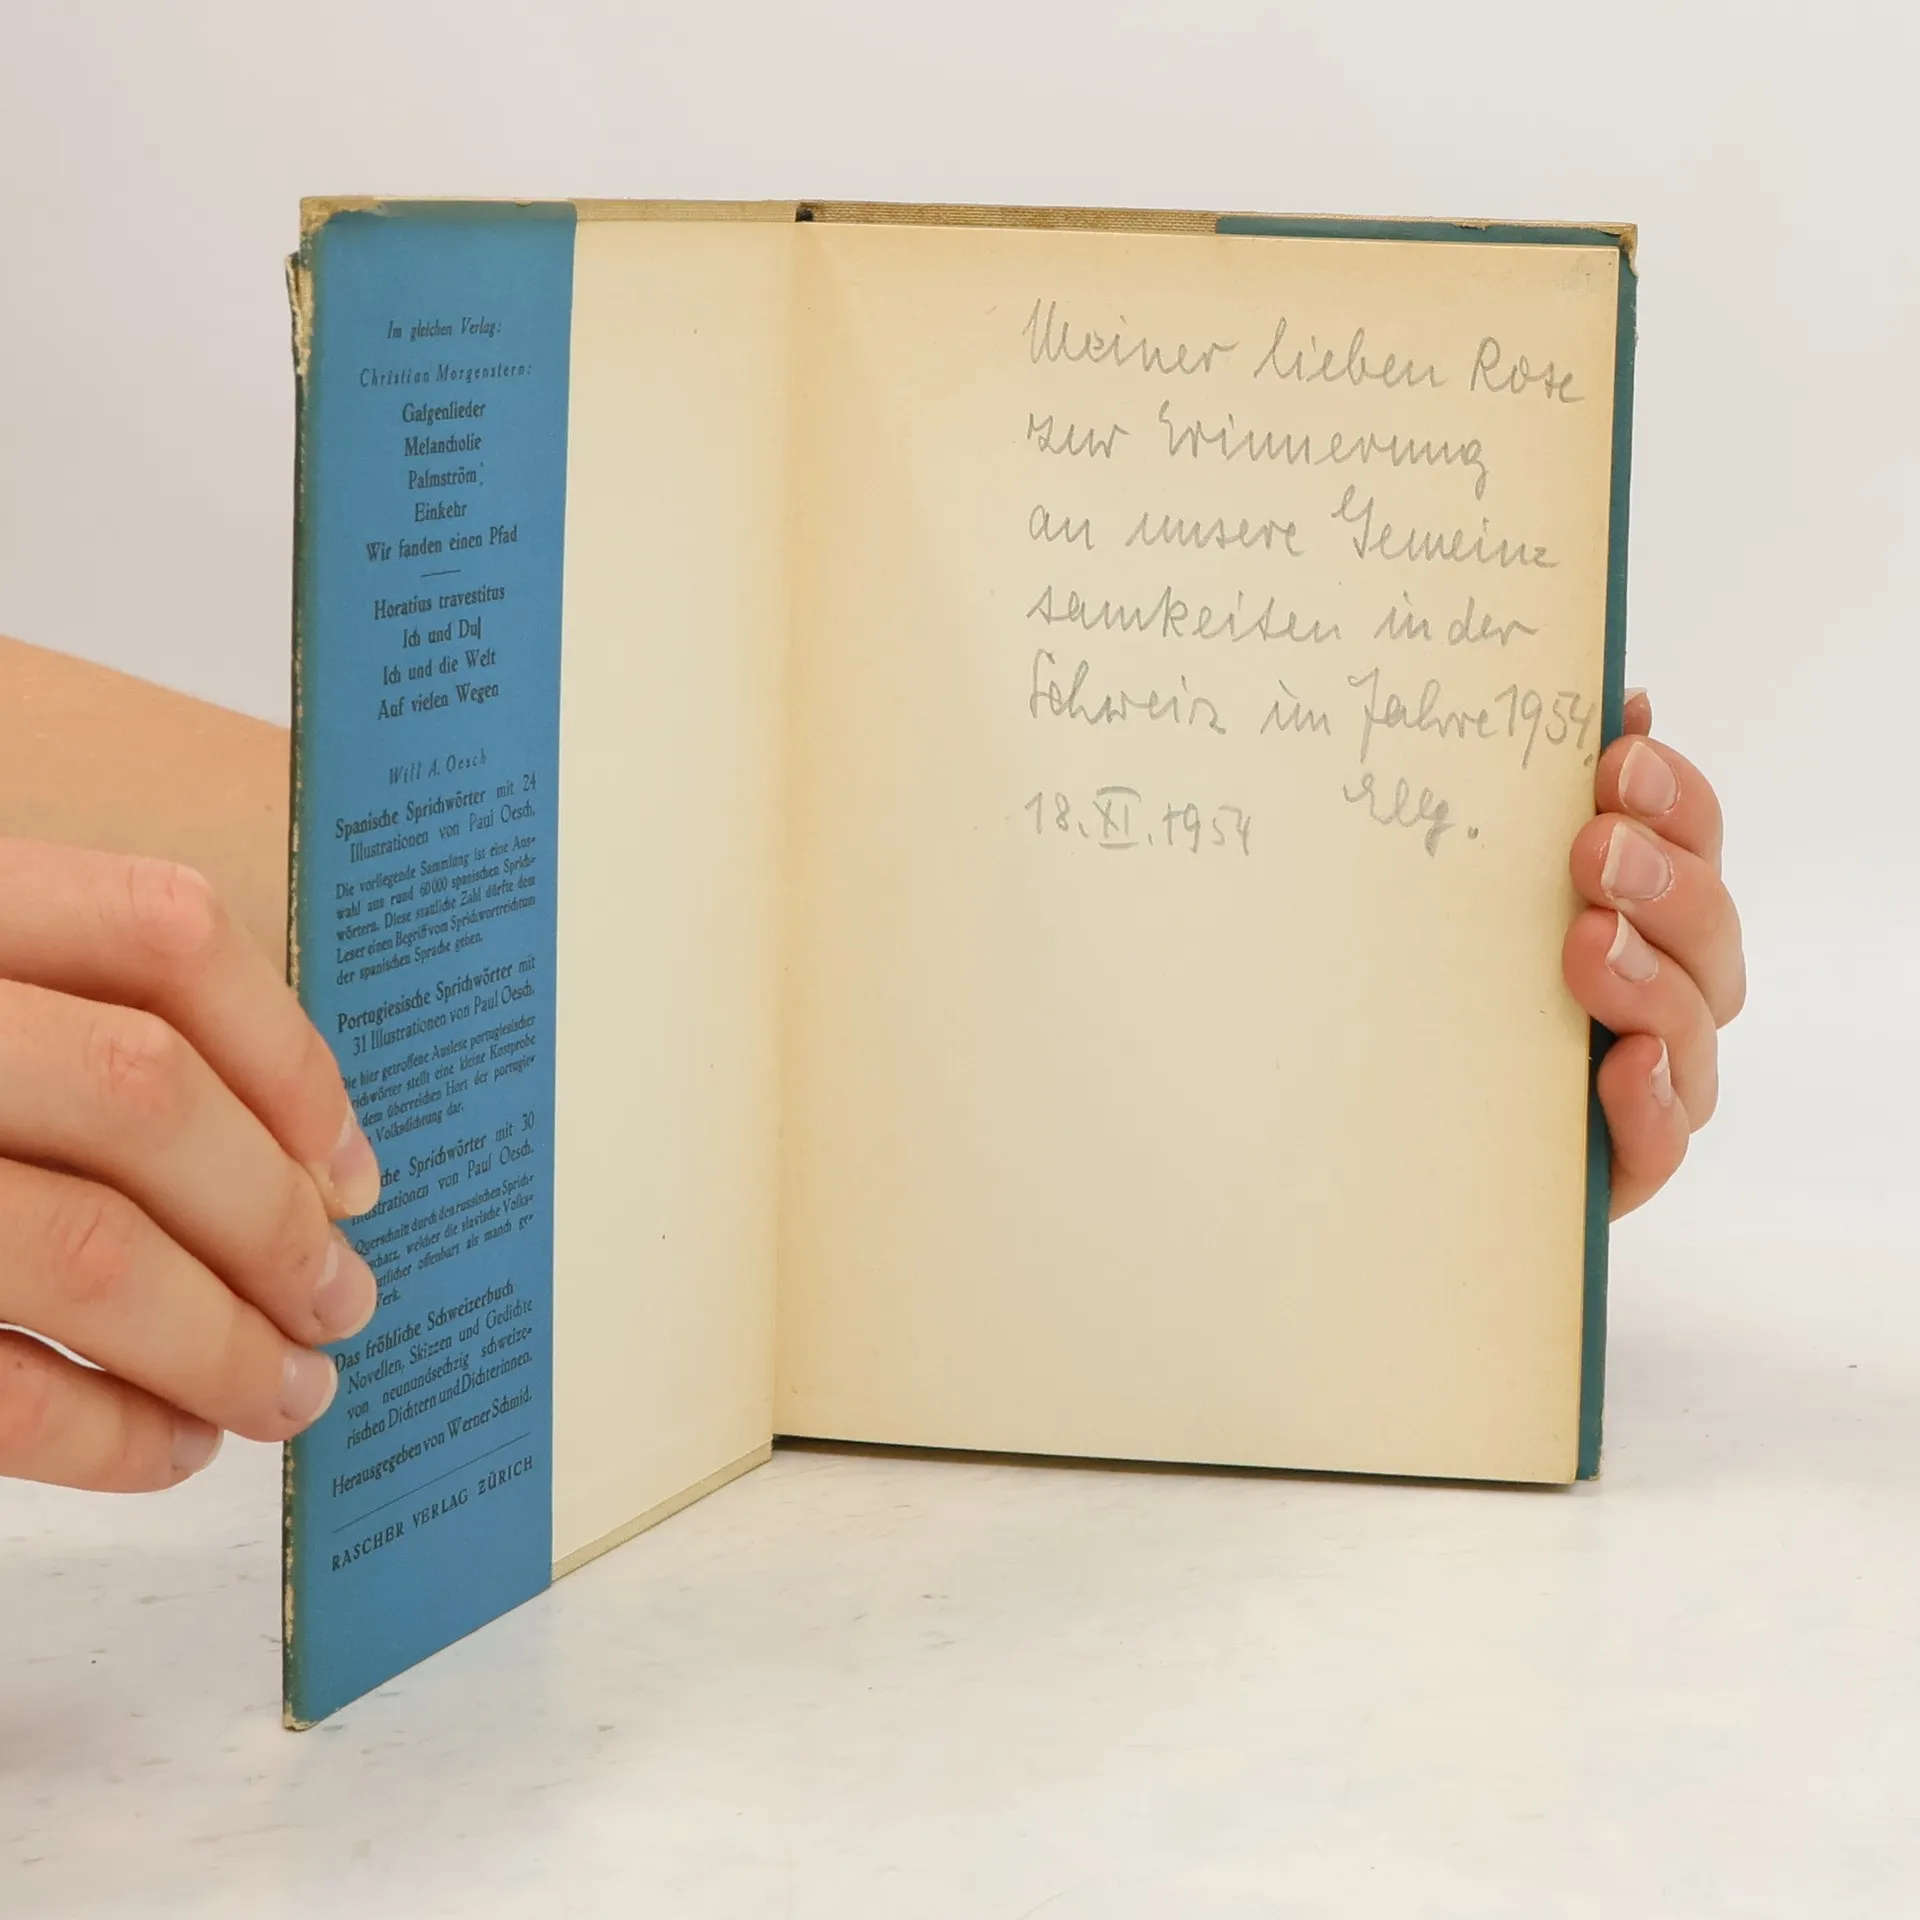 Im gleichen Verlag:
Christian Morgenstern:
Galgenlieder
Melancholie
Palmström
Einkehr
Wir fanden einen Pfad
Horatius travestitus
Ich und Du
Ich und die Welt
Auf vielen Wegen
Will A. Oesch
Spanische Sprichwörter mit 24
Illustrationen von Paul Oesch.
Die vorliegende Sammlung ist eine Aus-
wahl aus rund 60000 spanischen Sprich-
wörtern. Diese stattliche Zahl dürfte dem
Leser einen Begriff vom Sprichwortreichtum
der spanischen Sprache geben.
Portugiesische Sprichwörter mit
31 Illustrationen von Paul Oesch.
Die hier getroffene Auslese portugiesischer
richwörter stellt eine kleine Kostprobe
dem überreichen Hort der portugie-
n Volksdichtung dar.
che Sprichwörter mit 30
ustrationen von Paul Oesch.
Querschnitt durch den russischen Sprich-
schatz, welcher die slavische Volks-
utlicher offenbart als manch ge-
Werk.
Das fröhliche Schweizerbuch
Novellen, Skizzen und Gedichte
von neunundsechzig schweize-
rischen Dichtern und Dichterinnen.
Herausgegeben von Werner Schmid.
RASCHER VERLAG ZÜRICH
Meiner lieben Rose
zur Erinnerung
an unsere Gemein=
samkeiten in der
Schweiz im Jahre 1954.
18. XI. 1954